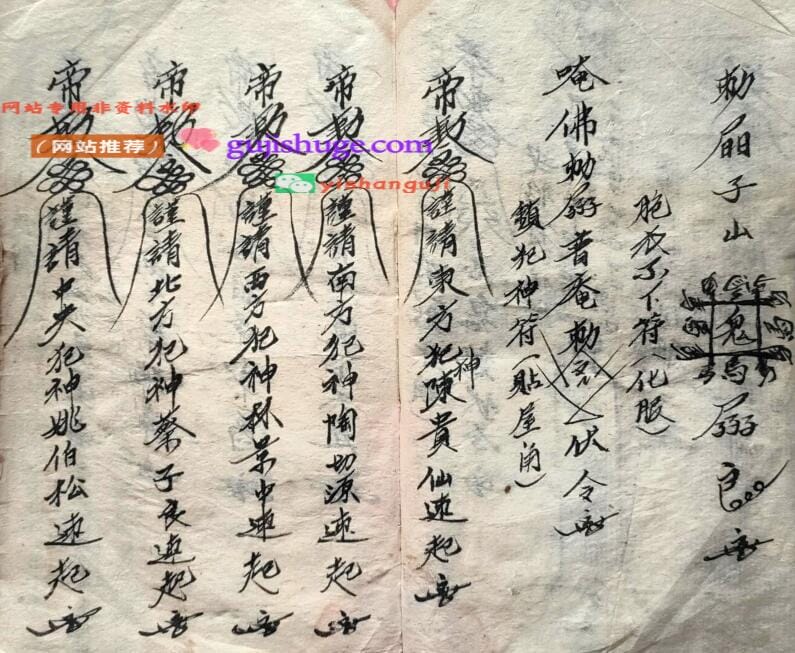 勅
子山
鬼
胞衣不下符(化服)
唵佛勅
普庵勅
伏令
鎖犯神符(貼屋角)
帝勅
謹請東方犯神陳貴仙速起
帝勅
謹請南方犯神陶切源速起
帝勅
謹請西方犯神林景中速起
帝勅
謹請北方犯神蔡子良速起
帝勅
謹請中央犯神姚伯松速起
网站专用非资料水印
(网站推荐)
gujishuge.com
yishanguji